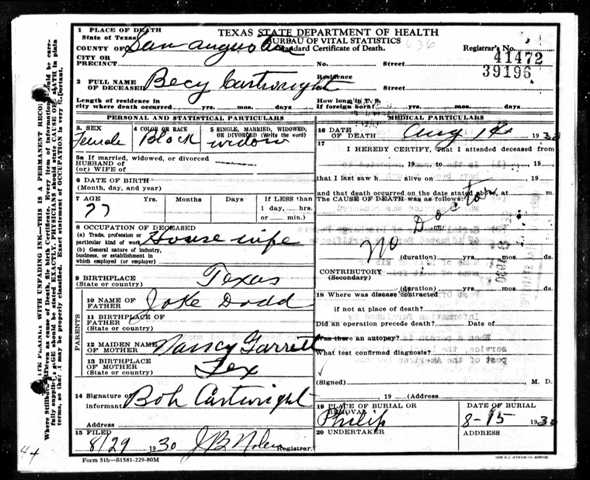 1 PLACE OF DEATH
State of Texas
TEXAS STATE DEPARTMENT OF HEALTH
BUREAU OF VITAL STATISTICS
COUNTY OF San Augustine
Standard Certificate of Death.
Registrar's No.
CITY OR
PRECINCT No. Street
41472
39196
2 FULL NAME
OF DECEASED Becy Cartwright
Residence
No. Street
Length of residence in
city where death occurred yrs. mos. ds.
How long in U. S.
if foreign born? yrs. mos. ds.
PERSONAL AND STATISTICAL PARTICULARS
MEDICAL PARTICULARS
3. SEX
Female
4 COLOR OR RACE
Black
5 SINGLE, MARRIED, WIDOWED,
OR DIVORCED (write the word)
widow
5a If married, widowed, or divorced
HUSBAND of
(or) WIFE of
6 DATE OF BIRTH
(Month, day, and year)
7 AGE
77
Yrs. Months Days
If LESS than
1 day, hrs.
or min.)
8 OCCUPATION OF DECEASED
(a) Trade, profession or
particular kind of work House wife
(b) General nature of industry,
business, or establishment in
which employed (or employer)
9 BIRTHPLACE
(State or country) Texas
PARENTS
10 NAME OF
FATHER Jake Dodd
11 BIRTHPLACE OF
FATHER
(State or country)
12 MAIDEN NAME
OF MOTHER Nancy Garrett
13 BIRTHPLACE OF
MOTHER
(State or country) Tex
14 Signature of
Informant Bob Cartwright
Address
15 FILED
8/29 1930
Registrar.
Form 51b
16 DATE
OF DEATH Aug 14 1930
17
I HEREBY CERTIFY, That I attended deceased from
19 to 19
that I last saw h alive on 19
and that death occurred on the date stated above at m.
The CAUSE OF DEATH was as follows:
No Doctor
(duration) yrs. mos. ds.
CONTRIBUTORY
(Secondary)
(duration) yrs. mos. ds.
18 Where was disease contracted
if not at place of death?
Did an operation precede death? Date of
Was there an autopsy?
What test confirmed diagnosis?
(Signed) M. D.
19 (Address)
19 PLACE OF BURIAL OR
REMOVAL
Philip
DATE OF BURIAL
8-15 1930
20 UNDERTAKER
ADDRESS
44